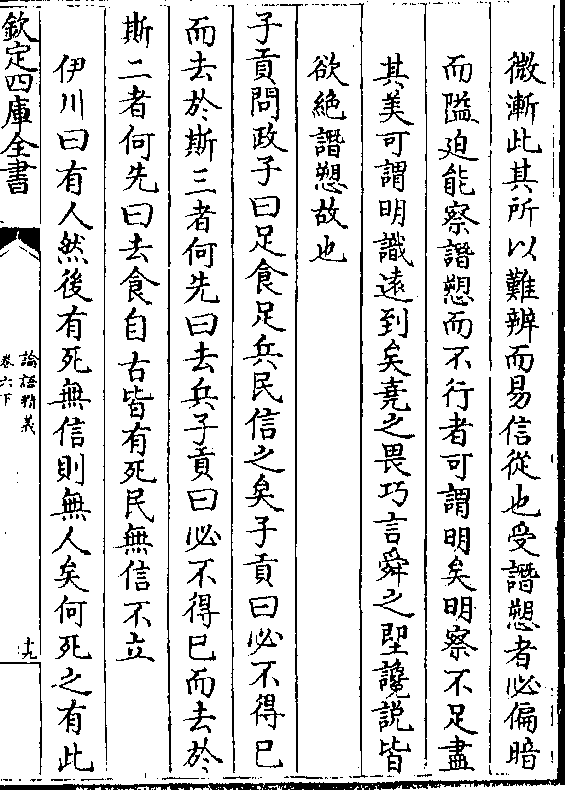 微漸此其所以難辨而易信從也受譖愬者必偏暗
而隘迫能察譖愬而不行者可謂明矣明察不足盡
其美可謂明識遠到矣堯之畏巧言舜之堲讒説皆
欲絶譖愬故也
子貢問政子曰足食足兵民信之矣子貢曰必不得已
而去於斯三者何先曰去兵子貢曰必不得已而去於
斯二者何先曰去食自古皆有死民無信不立
伊川曰有人然後有死無信則無人矣何死之有此
欽定四庫全書
論語精義
卷六下
十九